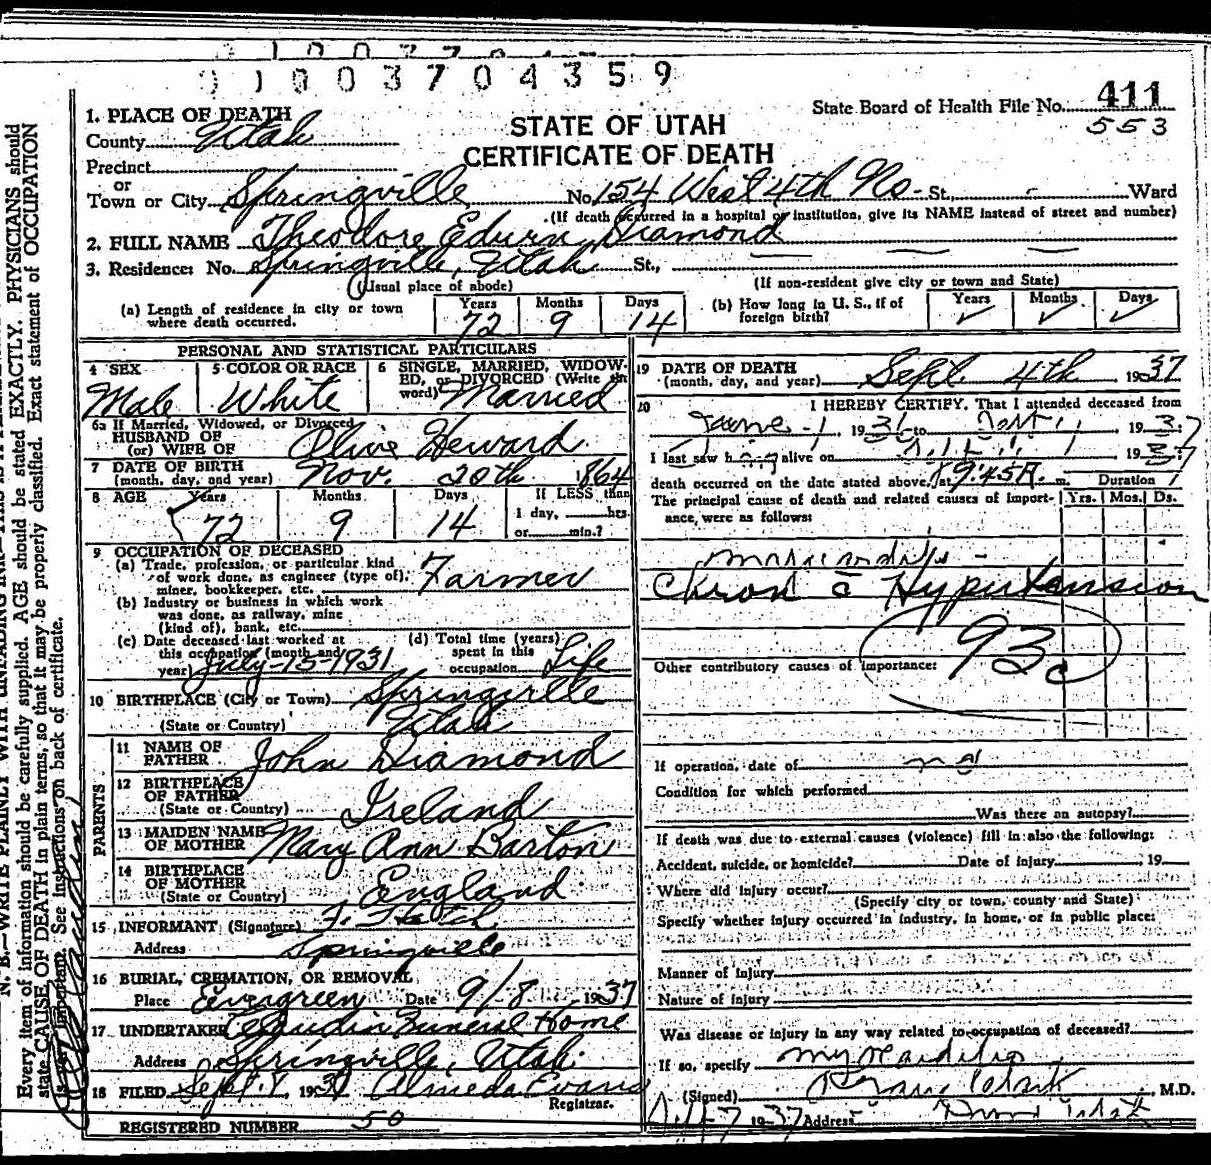 0100370435 9
State Board of Health File No. 411
553
STATE OF UTAH
CERTIFICATE OF DEATH
1. PLACE OF DEATH
County Utah
Precinct
or
Town or City Springville No. 154 West 4th No. St., - Ward
(If death occurred in a hospital or institution, give its NAME instead of street and number)
2. FULL NAME Theodore Edwin Diamond
3. Residence: No. Springville, Utah St.,
(Usual place of abode) (If non-resident give city or town and State)
(a) Length of residence in city or town where death occurred. Years 72 Months 9 Days 14
(b) How long in U. S., if of foreign birth? Years ✓ Months ✓ Days ✓
PERSONAL AND STATISTICAL PARTICULARS
4 SEX Male
5 COLOR OR RACE White
6 SINGLE, MARRIED, WIDOWED, or DIVORCED (Write the word) Married
6a If Married, Widowed, or Divorced
HUSBAND OF
(or) WIFE OF Olive Heward
7 DATE OF BIRTH
(month, day, and year) Nov. 20th 1864
8 AGE Years 72 Months 9 Days 14 If LESS than
1 day, hrs.
or min.?
9 OCCUPATION OF DECEASED
(a) Trade, profession, or particular kind
of work done, as engineer (type of),
miner, bookkeeper, etc. Farmer
(b) Industry or business in which work
was done, as railway, mine
(kind of), bank, etc.
(c) Date deceased last worked at
this occupation (month and
year) July-15-1931
(d) Total time (years)
spent in this
occupation Life
10 BIRTHPLACE (City or Town) Springville
(State or Country) Utah
PARENTS
11 NAME OF
FATHER John Diamond
12 BIRTHPLACE
OF FATHER
(State or Country) Ireland
13 MAIDEN NAME
OF MOTHER Mary Ann Barton
14 BIRTHPLACE
OF MOTHER
(State or Country) England
15 INFORMANT (Signature)
Address Springville
16 BURIAL, CREMATION, OR REMOVAL
Place Evergreen Date 9/8 1937
17 UNDERTAKER Claudin Funeral Home
Address Springville, Utah.
18 FILED Sept. 8, 1937 Almeda Evans
Registrar.
REGISTERED NUMBER 50
19 DATE OF DEATH
(month, day, and year) Sept. 4th 1937
20 I HEREBY CERTIFY, That I attended deceased from
June - 1 19 to 1937
I last saw h alive on 1937
death occurred on the date stated above, at 9:45 A. m. Duration
The principal cause of death and related causes of importance, were as follows: Yrs. Mos. Ds.
Myocarditis -
Chron c̄ Hypertension
93c
Other contributory causes of importance:
If operation, date of no
Condition for which performed
Was there an autopsy?
If death was due to external causes (violence) fill in also the following:
Accident, suicide, or homicide? Date of injury , 19
Where did injury occur?
(Specify city or town, county and State)
Specify whether injury occurred in industry, in home, or in public place:
Manner of Injury
Nature of injury
Was disease or injury in any way related to occupation of deceased?
If so, specify Myocarditis
(Signed) , M.D.
7 1937 Address
N. B.—WRITE PLAINLY WITH UNFADING INK—THIS IS A
Every item of information should be carefully supplied. AGE should be stated EXACTLY. PHYSICIANS should
state CAUSE OF DEATH in plain terms, so that it may be properly classified. Exact statement of OCCUPATION
is very important. See instructions on back of certificate.